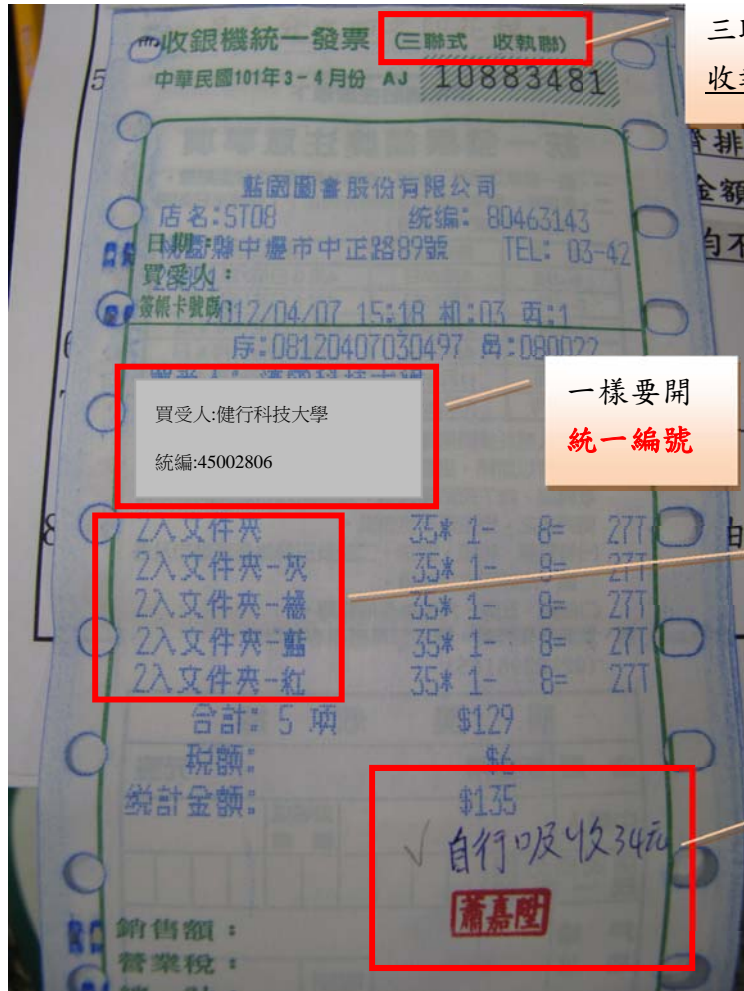 收銀機統一發票 (三聯式 收執聯)
中華民國101年3-4月份 AJ 10883481
圖書股份有限公司
店名:ST08 統編: 80463143
日期:
縣中壢市中正路89號 TEL: 03-42
買受人:
簽帳卡號碼
2012/04/07 15:18 机:03 頁:1
序:08120407030497 員:080022
買受人:健行科技大學
統編:45002806
一樣要開
統一編號
2入文件夾 35* 1- 8= 27T
2入文件夾-灰 35* 1- 8= 27T
2入文件夾-橘 35* 1- 8= 27T
2入文件夾-藍 35* 1- 8= 27T
2入文件夾-紅 35* 1- 8= 27T
合計: 5 項 $129
稅額: $6
總計金額: $135
√ 自行吸收34元
蕭嘉陞
銷售額:
營業稅: